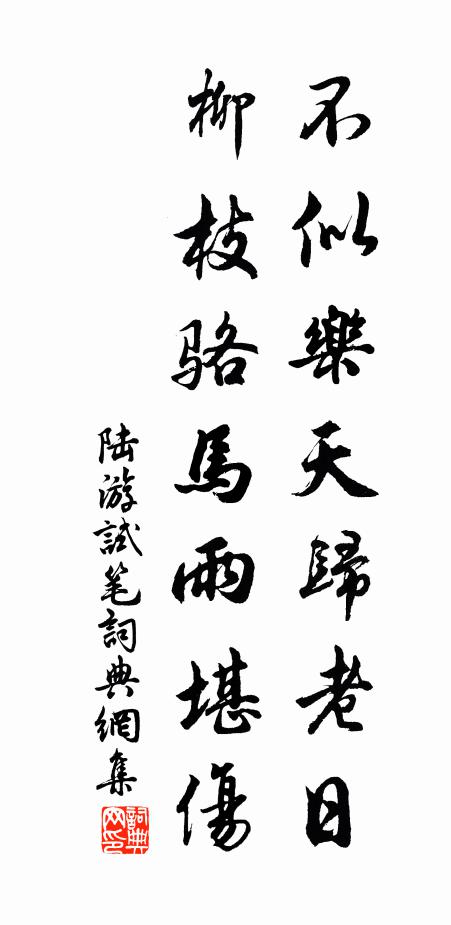 不似樂天歸老日
柳枝骆馬兩堪傷
陆游試笔詞典網集
詞典
网印